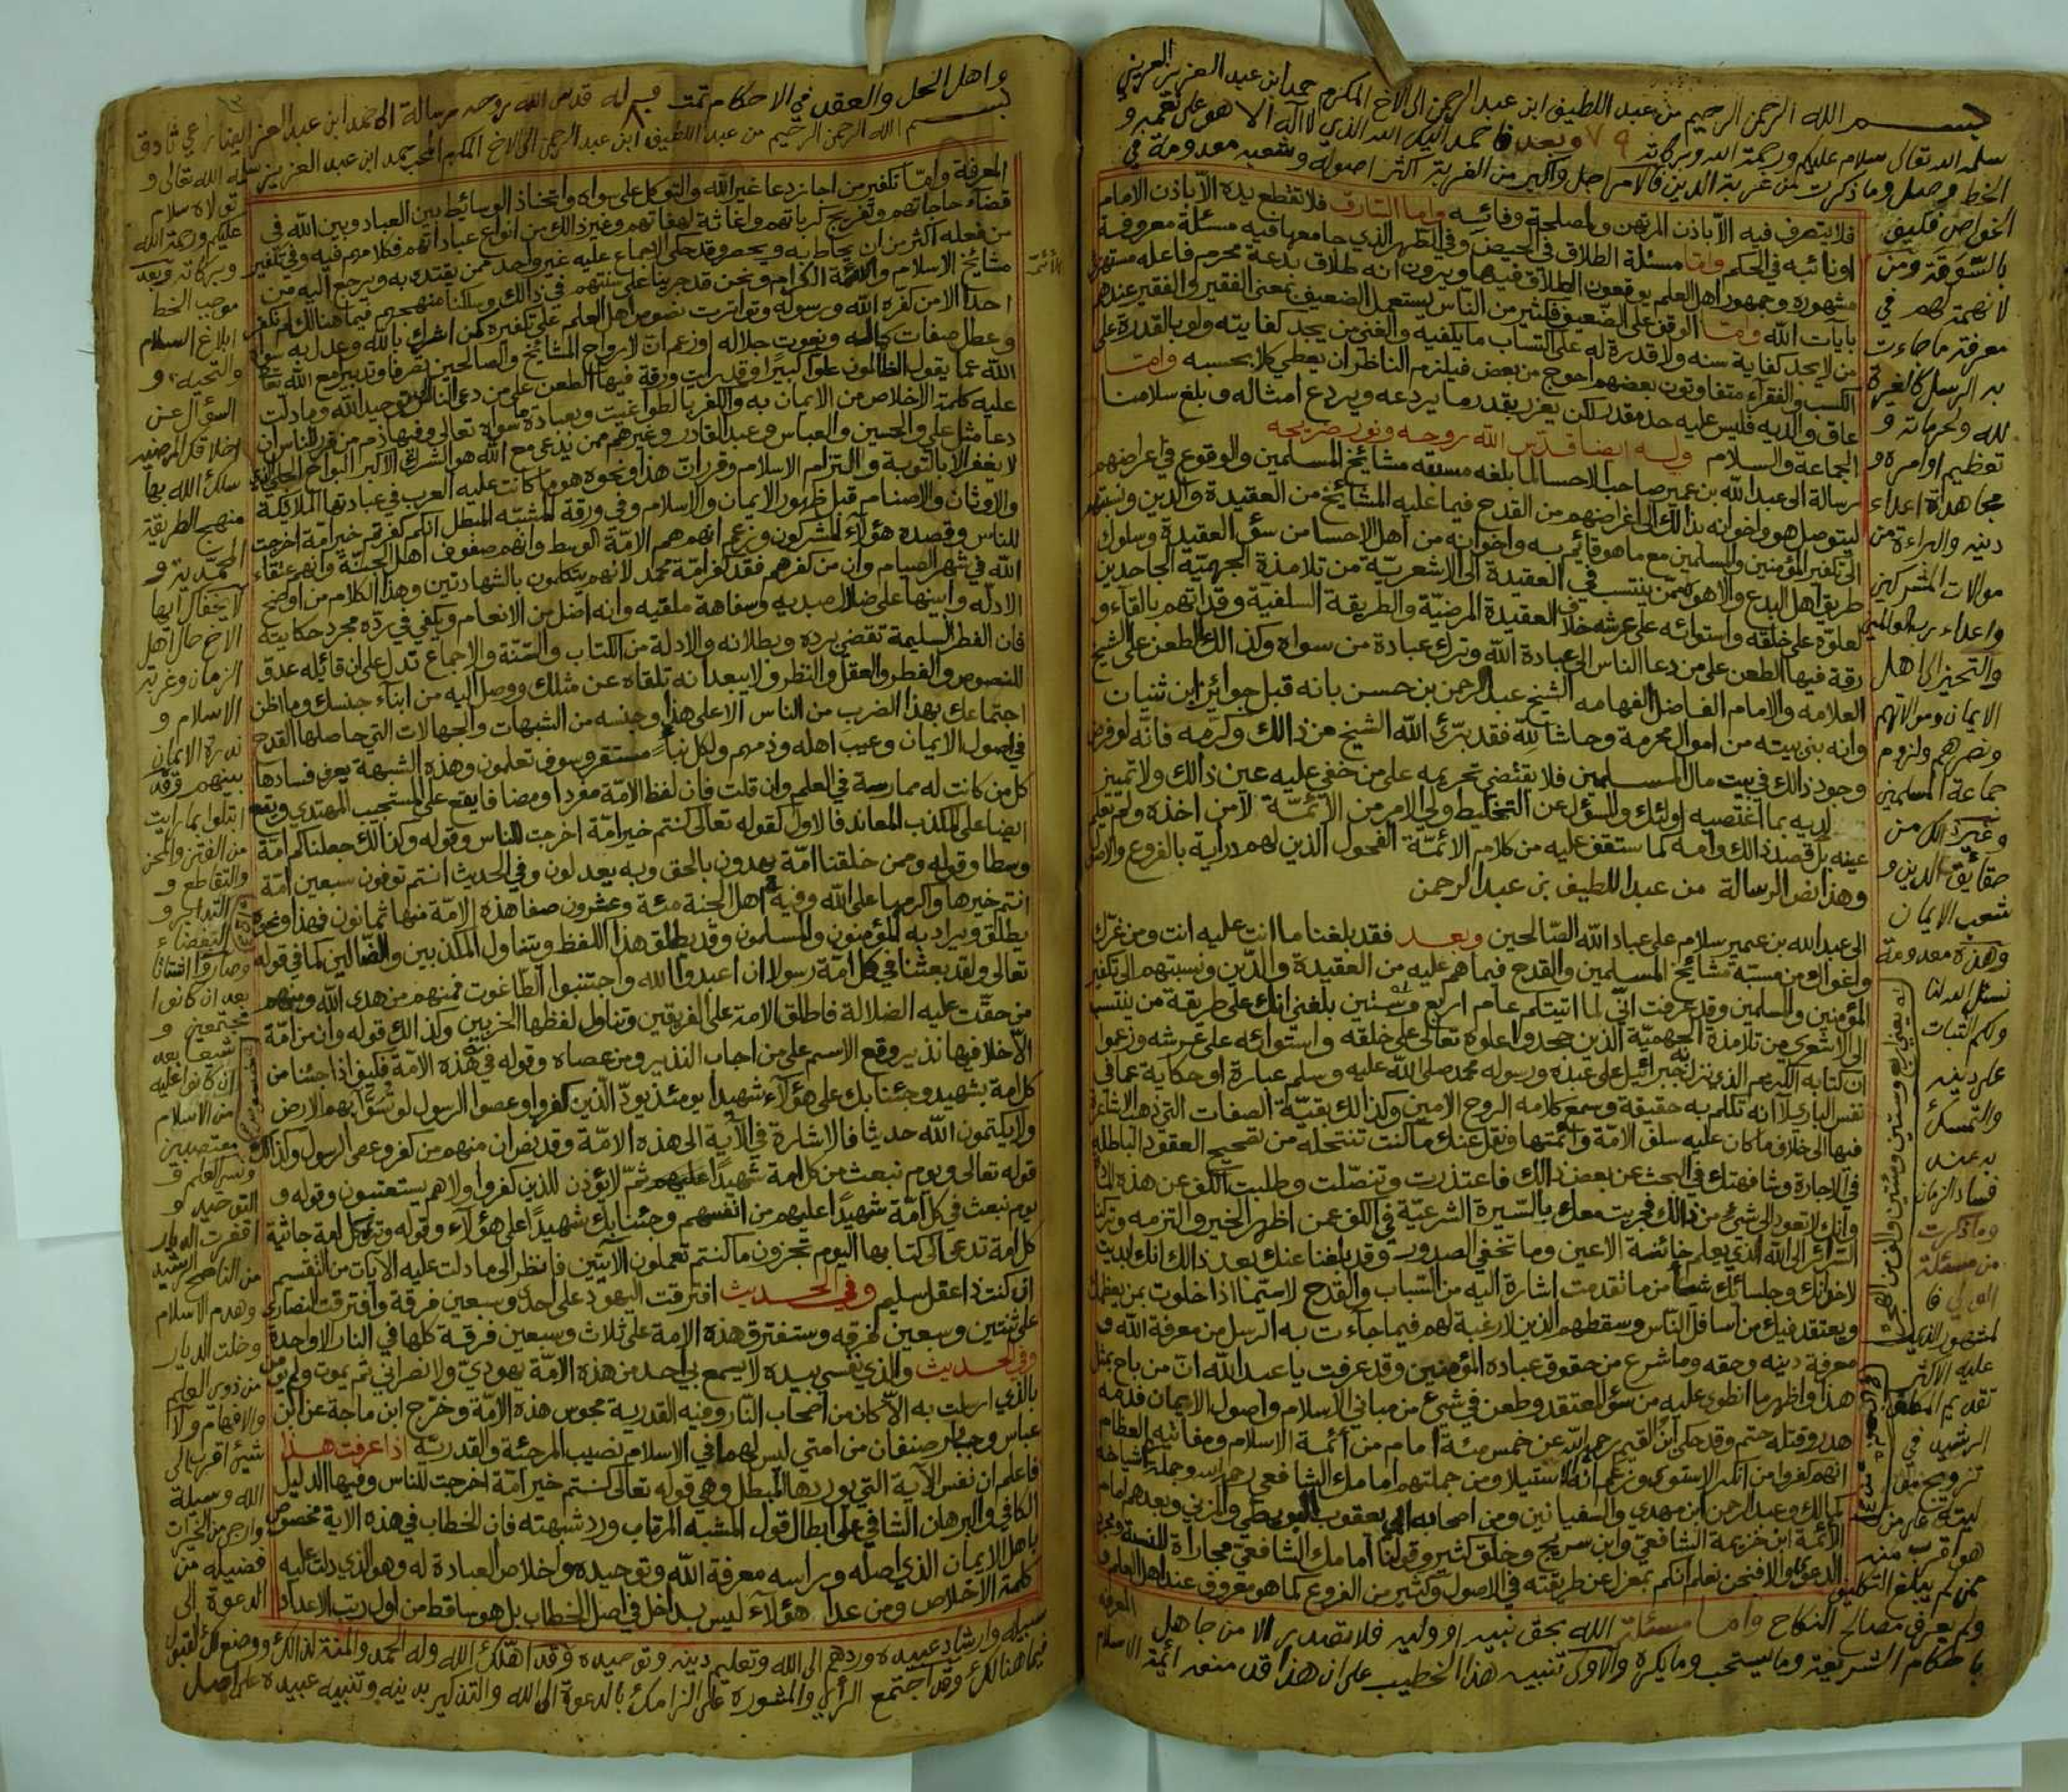 بسم الله الرحمن الرحيم من عبد اللطيف ابن عبد الرحمن الى الاخ المكرم حمد ابن عبد العزيز العريني
سلمه الله تعالى سلام عليكم ورحمة الله وبركاته ٧٩ وبعد فاحمد اليك الله الذي لا اله الا هو على نعمه و
الخط وصل وما ذكرت من غربة الدين فالامر اجل واكبر من الغربة اكثر اصوله وشعبه معدومة في
فلا يتصرف فيه الا باذن المرتهن ولمصلحة وفائه واما السارق فلا تقطع يده الا باذن الامام
او نائبه في الحكم واما مسئلة الطلاق في الحيض وفي الطهر الذي جامعها فيه مسئلة معروفة
مشهورة وجمهور اهل العلم يوقعون الطلاق فيها ويرون انه طلاق بدعة محرم فاعله مستهزئ
بآيات الله واما الوقف على الضعيف فكثير من الناس يستعمل الضعيف بمعنى الفقير والفقير عندهم
من لا يجد كفاية سنه ولا قدرة له على اكتساب ما يكفيه والغني من يجد كفايته ولو بالقدرة على
الكسب والفقراء متفاوتون بعضهم احوج من بعض فيلزم الناظر ان يعطي كلا بحسبه واما
عاق والديه فليس عليه حد مقدر لكن يعزر بقدر ما يردعه ويردع امثاله وبلغ سلامنا
الجماعة والسلام وله ايضا قدس الله روحه ونور ضريحه
رسالة الى عبد الله بن عمير صاحب الاحسا لما بلغه مسبته مشائخ المسلمين والوقوع في اعراضهم
ليتوصل هو واخوانه بذالك الى اغراضهم من القدح فيما عليه المشائخ من العقيدة والدين ونسبتهم
الى تكفير المؤمنين والمسلمين مع ما هو قائم به واخوانه من اهل الاحسا من سوء العقيدة وسلوك
طريق اهل البدع والاهواء ممن ينتسب في العقيدة الى الاشعرية من تلامذة الجهمية الجاحدين
لعلوه على خلقه واستوائه على عرشه خلاف العقيدة المرضية والطريقة السلفية وقداتهم بالقاء و
رقة فيها الطعن على من دعا الناس الى عبادة الله وترك عبادة من سواه وكذالك الطعن على الشيخ
العلامه والامام الفاضل الفهامه الشيخ عبد الرحمن بن حسن بانه قبل جوائز ابن ثنيان
وانه بنى بيته من اموال محرمة وحاشا لله فقد برّك الله الشيخ عن ذالك وكرمه فانه لو فرض
وجود ذالك في بيت مال المسلمين فلا يقتضي تحريمه على من خفي عليه عين ذالك ولا تمييز
لديه بما اغتصبه اولئك والسؤل عن التخليط ولي الامر من الائمة لا من اخذه ولم يعلم
عينه بل قصد ذالك وامه كما ستقف عليه من كلام الائمة الفحول الذين لهم دراية بالفروع والاصول
وهذا نص الرسالة من عبد اللطيف بن عبد الرحمن
الى عبد الله بن عمير سلام على عباد الله الصالحين وبعد فقد بلغنا ما انت عليه انت ومن غرك
واغواك من مسبة مشائخ المسلمين والقدح فيما هم عليه من العقيدة والدين ونسبتهم الى تكفير
المؤمنين والمسلمين وقد عرفت اني لما اتيتكم عام اربع وستين بلغني انك على طريقة من ينتسب
الى الاشعري من تلامذة الجهمية الذين جحدوا علوه تعالى على خلقه واستوائه على عرشه وزعموا
ان كتابه الكريم الذي نزل به جبرائيل على عبده ورسوله محمد صلى الله عليه وسلم عبارة او حكاية عما في
نفس الباري لا انه تكلم به حقيقة وسمع كلامه الروح الامين وكذالك بقية الصفات التي ذهب الاشاعرة
فيها الى خلاف ما كان عليه سلف الامة وائمتها ونقل عنك ما كنت تنتحله من تصحيح العقود الباطلة
في الاجارة وشافهتك في البحث عن بعض ذالك فاعتذرت وتنصلت وطلبت الكف عن هذه
وانك لا تعود الى شيء من ذالك فجريت معك بالسيرة الشرعية في الكف عمن اظهر الخير والتزمه وترك
السرائر الى الله الذي يعلم خائنة الاعين وما تخفي الصدور وقد بلغنا عنك بعد ذالك انك ابديت
لاخوانك وجلسائك شيئا من ما تقدمت اشارة اليه من السباب والقدح لا سيما اذا خلوت بمن يعظمك
ويعتقد فيك من اسافل الناس وسقطهم الذين لا رغبة لهم فيما جاءت به الرسل من معرفة الله و
معرفة دينه وحقه وما شرع من حقوق عباده المؤمنين وقد عرفت يا عبد الله ان من باح بمثل
هذا واظهر ما انطوى عليه من سوء المعتقد وطعن في شيء من مباني الاسلام واصول الايمان فدمه
هدر وقتله حتم وقد حكى ابن القيم رحمه الله عن خمس مئة امام من ائمة الاسلام ومفاتيه العظام
انهم كفروا من انكر الاستوى وزعم انه الاستيلا ومن جملتهم امامك الشافعي رحمه الله وجملة اشياخه
كمالك وعبد الرحمن ابن مهدي والسفيانين ومن اصحابه ابي يعقوب البويطي والمزني وبعدهم امام
الائمة ابن خزيمة الشافعي وابن سريج وخلق كثير وقولنا امامك الشافعي مجاراة للنسبة ومجرد
الدعوى والا فنحن نعلم انكم بمعزل عن طريقته في الاصول وكثير من الفروع كما هو معروف عند اهل العلم و
المعرفة
اغواص فكيف
بالسوقة ومن
لا نهمة لهم في
معرفة ما جاءت
به الرسل كالغيرة
لله ولحرماته و
تعظيم اوامره و
مجاهدة اعداء
دينه والبراءة من
موالات المشركين
واعداء رب العالمين
والتحيز الى اهل
الايمان وموالاتهم
ونصرهم ولزوم
جماعة المسلمين
وغير ذالك من
حقايق الدين و
شعب الايمان
وهذه معدومة
نسئل الله لنا
ولكم الثبات
على دينه
والتمسك
به عند
فساد الزمان
وما ذكرت
من مسئلة
الولي فا
لمشهور الذي
عليه الاكثر
تقديم المكلف
الرشيد في
تزويج
ليته على من
هو اقرب منه
ممن لم يبلغ التكليف
ولم يعرف مصالح النكاح واما مسئلة الله بحق نبيه او وليه فلا تصدر الا من جاهل
باحكام الشريعة وما يستحب وما يكره والاولى تنبيه هذا الخطيب على ان هذا قد منعه ائمة الاسلام
واهل الحل والعقد في الاحكام تمت وله قدس الله روحه رسالة الى حمد ابن عبد العزيز ايضا راعي ثادق
بسم الله الرحمن الرحيم ٨٠ من عبد اللطيف ابن عبد الرحمن الى الاخ المكرم المحب حمد ابن عبد العزيز سلمه الله تعالى و
تولاه سلام
عليكم ورحمة الله
وبركاته وبعد
موجب الخط
ابلاغ السلام
والتحيه و
السؤال عن
اخلاقك المرضيه
سلك الله بها
منهج الطريقة
المحمدية و
لا يخفاك ايها
الاخ حال اهل
الزمان وغربة
الاسلام و
ندرة الايمان
بينهم وقد
ابتلوا بما رايت
من الفتن والمحن
والتقاطع و
التدابر و
التبغضاء
وصاروا اشتاتا
بعد ان كانوا
مجتمعين و
شيعا بعد
ان كانوا عليه
من الاسلام
معتصبين
ونسر العلم و
التوحيد و
اقفرت الديار
من الناصح الرشيد
وهدم الاسلام
وخلت الديار
من ذوي العلم
والافهام ولا
شيئ اقرب الى
الله وسيلة
وارجى من الخيرات
فضيلة من
الدعوة الى
المعرفة وامّا تكفير من اجاز دعا غير الله والتوكل على سواه واتخاذ الوسائط بين العباد وبين الله في
قضاء حاجاتهم وتفريج كرباتهم واغاثة لهفاتهم وغير ذالك من انواع عباداتهم فكلامهم فيه وفي تكفير
من فعله اكثر من ان يحاط به ويحصر وقد حكى الاجماع عليه غير واحد ممن يقتدى به ويرجع اليه من
مشايخ الاسلام والائمة الكرام ونحن قد جرينا على سنتهم في ذالك وسلكنا منهجهم فيما هنالك لم نكفر
احدا الا من كفره الله ورسوله وتواترت نصوص اهل العلم على تكفيره كمن اشرك بالله وعدل به سواه
وعطل صفات كماله ونعوت جلاله او زعم ان لارواح المشايخ والصالحين تصرفا وتدبيرا مع الله تعالى
الله عما يقول الظالمون علوا كبيرا وقد رايت ورقة فيها الطعن على من دعى الناس الى توحيد الله وما دلت
عليه كلمة الاخلاص من الايمان به والكفر بالطواغيت وبعبادة ما سواه تعالى وفيها ذم من قرر للناس ان
دعا مثل علي والحسين والعباس وعبد القادر وغيرهم ممن يدعى مع الله هو الشرك الاكبر البواح الجلي الذي
لا يغفر الا بالتوبة والتزام الاسلام وقرر ان هذا ونحوه هو ما كانت عليه العرب في عبادتها الملائكة
والاوثان والاصنام قبل ظهور الايمان والاسلام وفي ورقة المشبه المبطل انكم كفرتم خير امة اخرجت
للناس وقصده هؤلاء المشركون وزعم انهم هم الامة الوسط وانهم صفوف اهل الجنة وانهم عتقاء
الله في شهر الصيام وان من كفرهم فقد كفر امة محمد لانهم يتكلمون بالشهادتين وهذا الكلام من اوضح
الادلة وابينها على ضلال مبديه وسفاهة ملقيه وانه اضل من الانعام ويكفي في رده مجرد حكايته
فان الفطر السليمة تقضي برده وبطلانه والادلة من الكتاب والسنة والاجماع تدل على ان قائله عدو
للنصوص والفطر والعقل والنظر ولا يبعد انه تلقاه عن مثلك ووصل اليه من ابناء جنسك وما اظن
اجتماعك بهذا الضرب من الناس الا على هذا وجنسه من الشبهات والجهالات التي حاصلها القدح
في اصول الايمان وعيب اهله وذمهم ولكل نباء مستقر وسوف تعلمون وهذه الشبهة يعرف فسادها
كل من كانت له ممارسة في العلم وان قلت فان لفظ الامة مفردا ومضافا يقع على المستجيب المهتدي ويقع
ايضا على المكذب المعاند فالاول كقوله تعالى كنتم خير امة اخرجت للناس وقوله وكذالك جعلناكم امة
وسطا وقوله وممن خلقنا امة يهدون بالحق وبه يعدلون وفي الحديث انتم توفون سبعين امة
انتم خيرها واكرمها على الله وفيه اهل الجنة مئة وعشرون صفا هذه الامة منها ثمانون فهذا ونحوه
يطلق ويراد به المؤمنون والمسلمون وقد يطلق هذا اللفظ ويتناول المكذبين والضالين كما في قوله
تعالى ولقد بعثنا في كل امة رسولا ان اعبدوا الله واجتنبوا الطاغوت فمنهم من هدى الله ومنهم
من حقت عليه الضلالة فاطلق الامة على الفريقين وتناول لفظها الحزبين وكذالك قوله وان من امة
الا خلا فيها نذير وقع الاسم على من اجاب النذير ومن عصاه وقوله في هذه الامة فكيف اذا جئنا من
كل امة بشهيد وجئنا بك على هؤلاء شهيدا يومئذ يود الذين كفروا وعصوا الرسول لو تسوّى بهم الارض
ولا يكتمون الله حديثا فالاشارة في الآية الى هذه الامة وقد نص ان منهم من كفر وعصى الرسول وكذالك
قوله تعالى ويوم نبعث من كل امة شهيدا عليهم ثم لا يؤذن للذين كفروا ولا هم يستعتبون وقوله و
يوم نبعث في كل امة شهيدا عليهم من انفسهم وجئنا بك شهيدا على هؤلاء وقوله وترى كل امة جاثية
كل امة تدعى الى كتابها اليوم تجزون ما كنتم تعملون الآيتين فانظر الى ما دلت عليه الآيات من التقسيم
ان كنت ذا عقل سليم وفي الحديث افترقت اليهود على احدى وسبعين فرقة وافترقت النصارى
على ثنتين وسبعين فرقه وستفترق هذه الامة على ثلاث وسبعين فرقة كلها في النار الا واحدة
وفي الحديث والذي نفسي بيده لا يسمع بي احد من هذه الامة يهودي ولا نصراني ثم يموت ولم يؤمن
بالذي ارسلت به الا كان من اصحاب النار وفيه القدرية مجوس هذه الامة وخرج ابن ماجة عن ابن
عباس وجابر صنفان من امتي ليس لهما في الاسلام نصيب المرجئة والقدرية اذا عرفت هذا
فاعلم ان نفس الآية التي يوردها المبطل وهي قوله تعالى كنتم خير امة اخرجت للناس وفيها الدليل
الكافي والبرهان الشافي على ابطال قول المشبه المرتاب ورد شبهته فان الخطاب في هذه الاية مخصوص
باهل الايمان الذي اصله وراسه معرفة الله وتوحيده واخلاص العبادة له وهو الذي دلت عليه
كلمة الاخلاص ومن عدا هؤلاء ليس بداخل في اصل الخطاب بل هو ساقط من اول رتب الاعداد
سبيله وارشاد عبيده وردهم الى الله وتعليم دينه وتوحيده وقد اهلك الله وله الحمد والمنة لذالك ووضع لك القبول
فيما هنالك وقد اجتمع الراي والمشورة على الزامك بالدعوة الى الله والتذكير بدينه وتنبيه عبيده على اصل